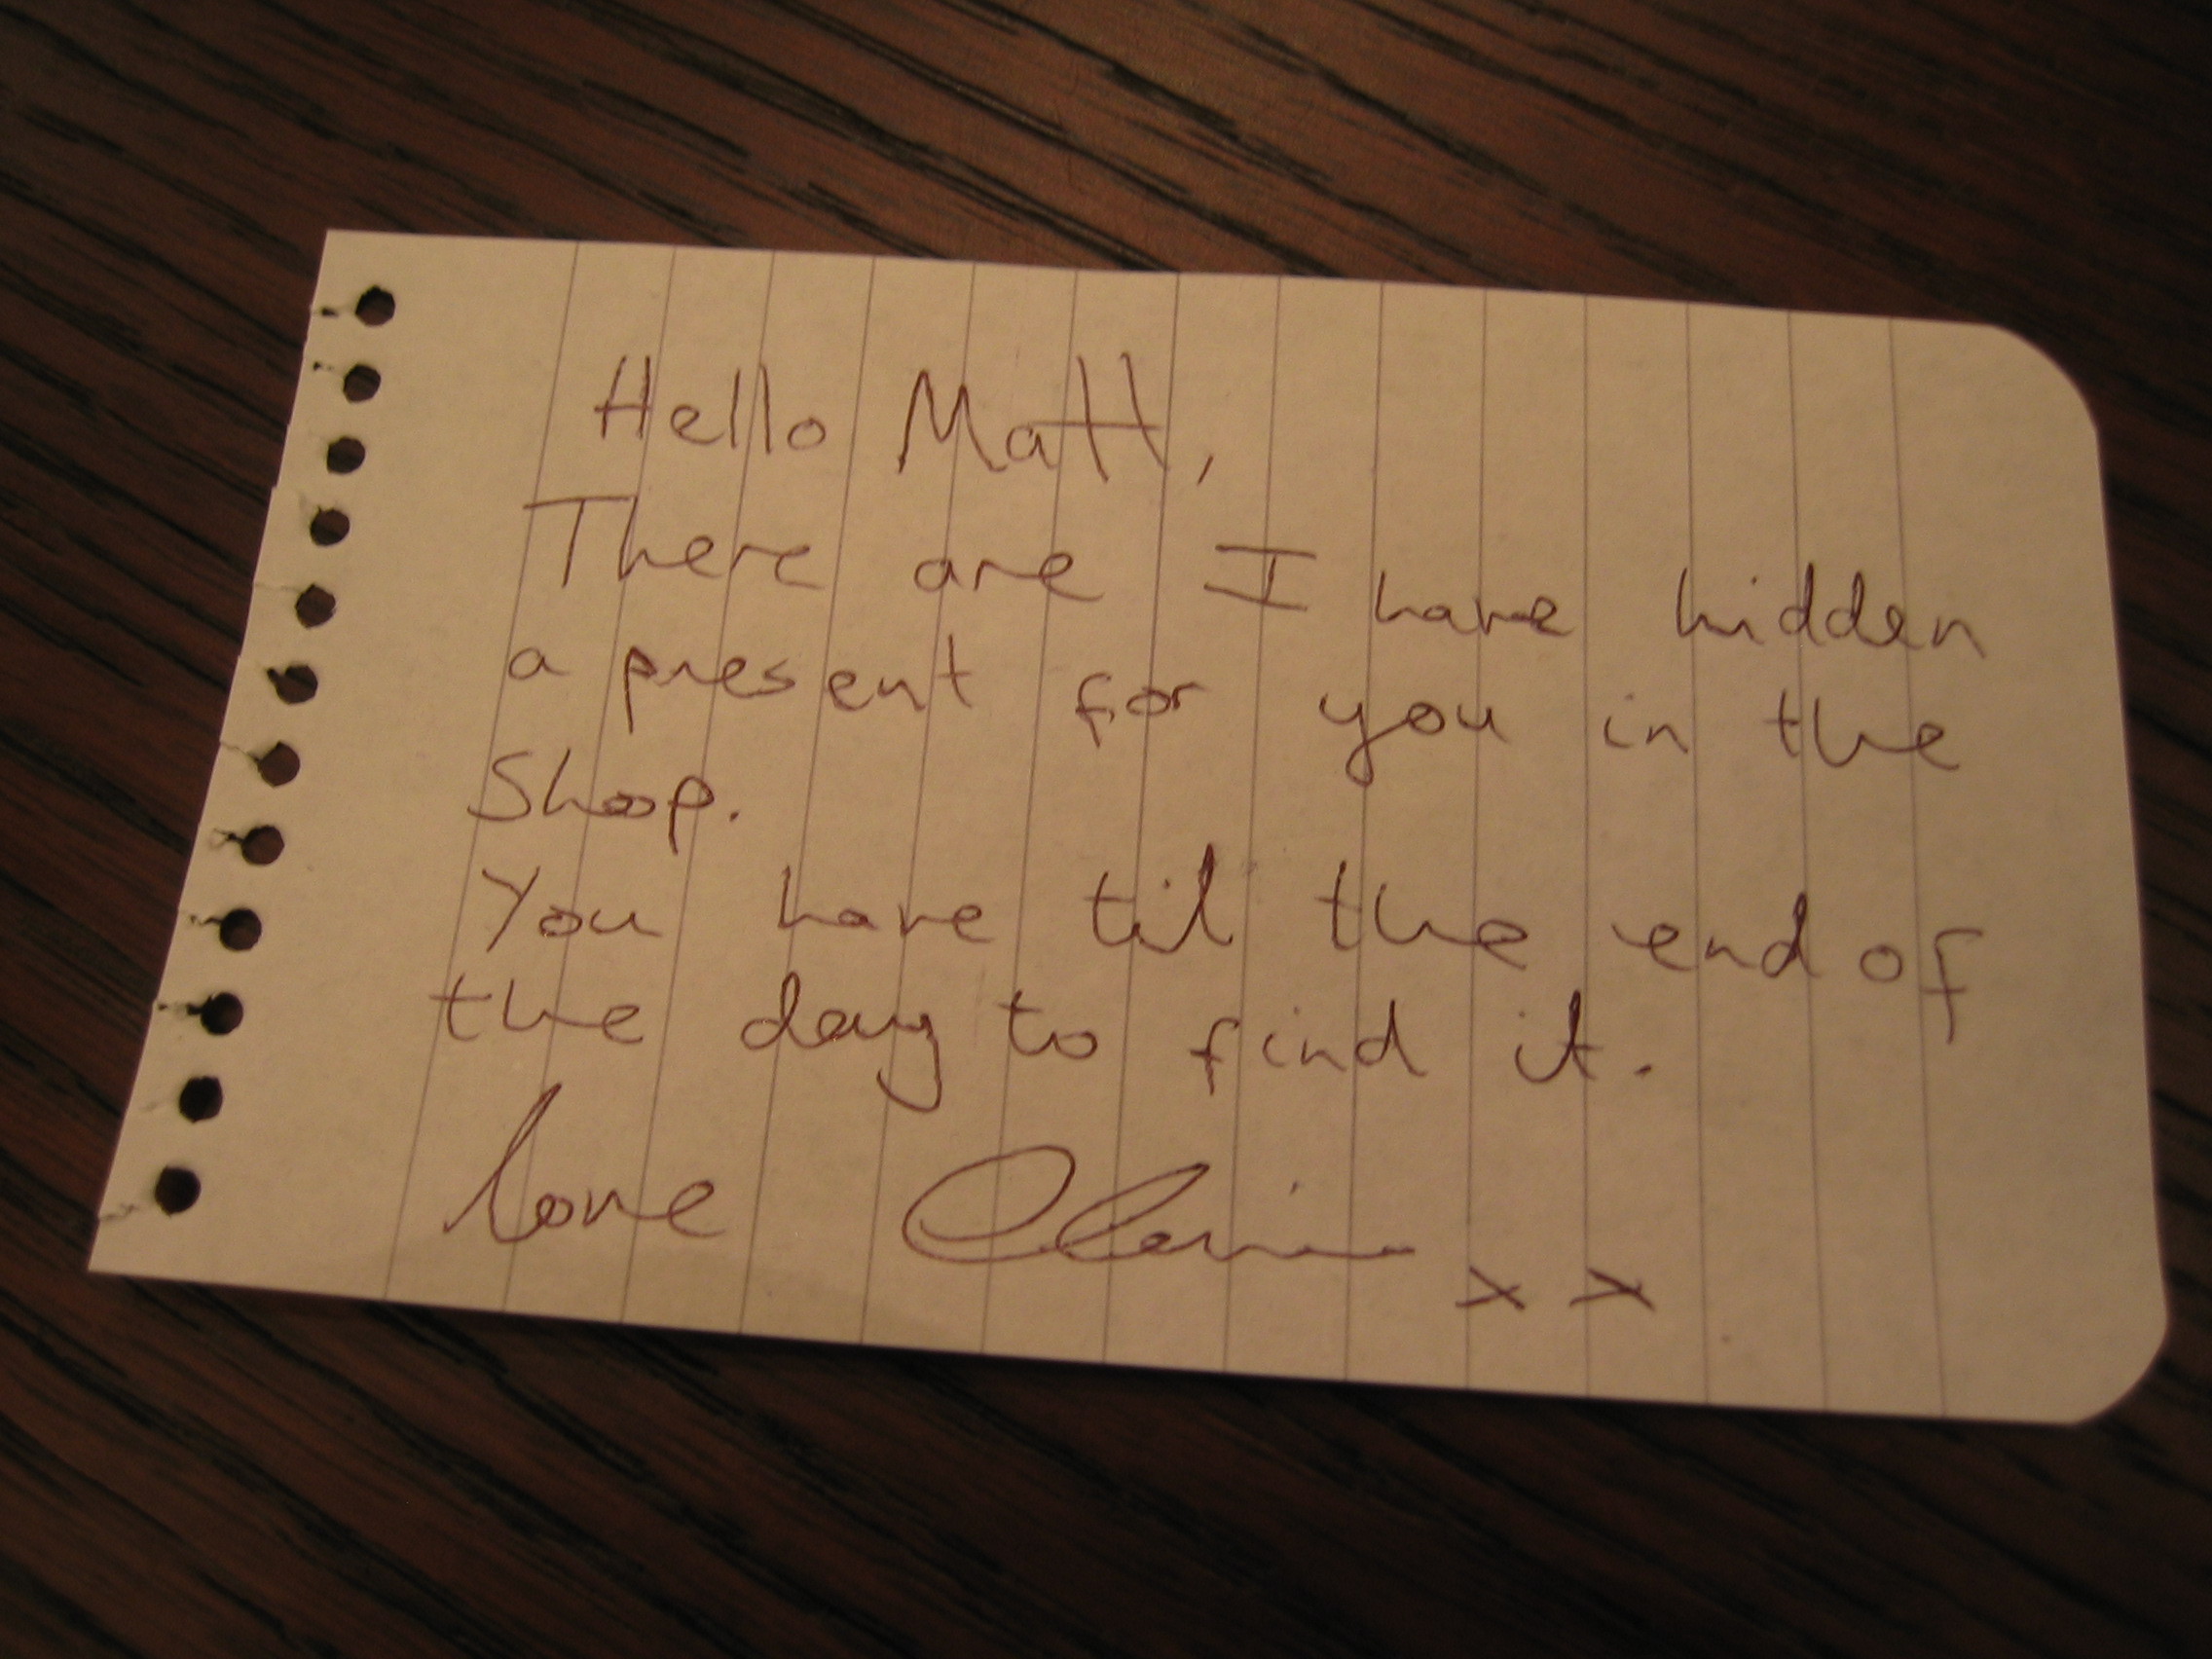 Hello Matt,
There are I have hidden
a present for you in the
Shoop.
You have til the end of
the day to find it.
love
x x